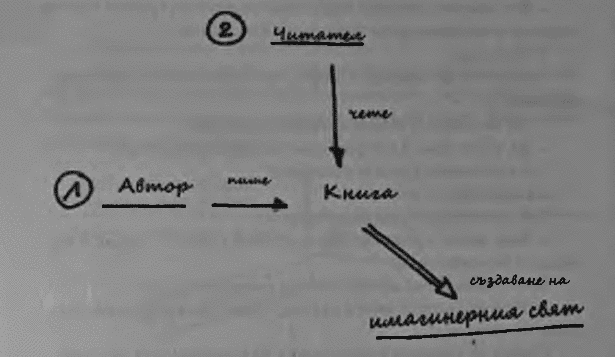 2 Читател
чете
1 Автор пише Книга
създаване на
имагинерния свят